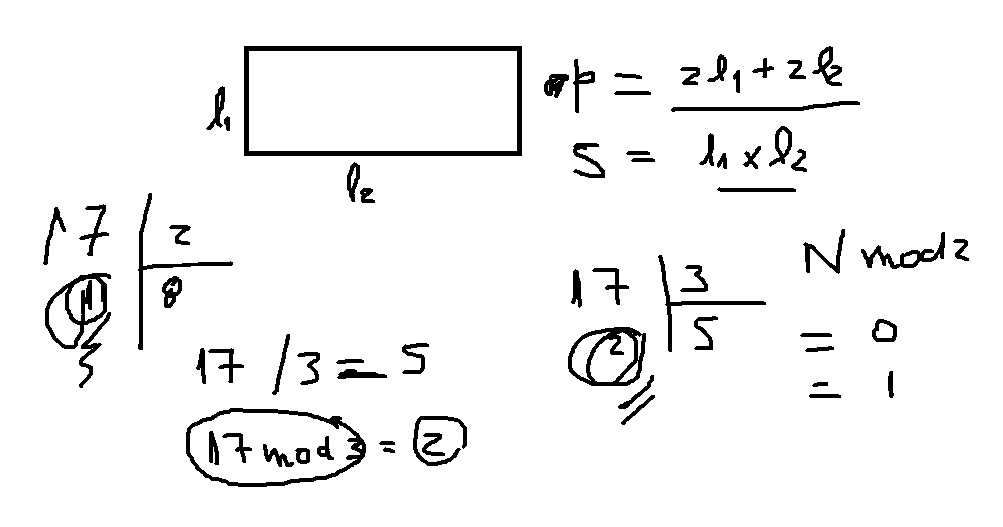 l1
l2
p = 2l1 + 2l2
S = l1 x l2
17 2
1 8
17 / 3 = 5
17 mod 3 = 2
17 3
2 5
N mod 2
= 0
= 1